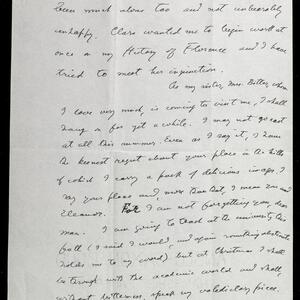 been much alone too and not unbearably
unhappy. Clara wanted me to begin work at
once on my History of Florence and I have
tried to meet her injunction.
As my sister, Mrs. Bitter, whom
I love very much, is coming to visit me, I shall
hang on for yet a while. I may not go east
at all this summer. Even as I say it, I have
the keenest regret about your place in the hills
of which I carry a pack of delicious images. I
say your place and, more than that, I mean you and
Eleanor. I am not forgetting you, dear
man. I am going to teach at the university this
fall (I said I would, and again routing abstractly
holds me to my word) but at Christmas I shall
be through with the academic world and shall,
without bitterness, speak my valedictory pieces.